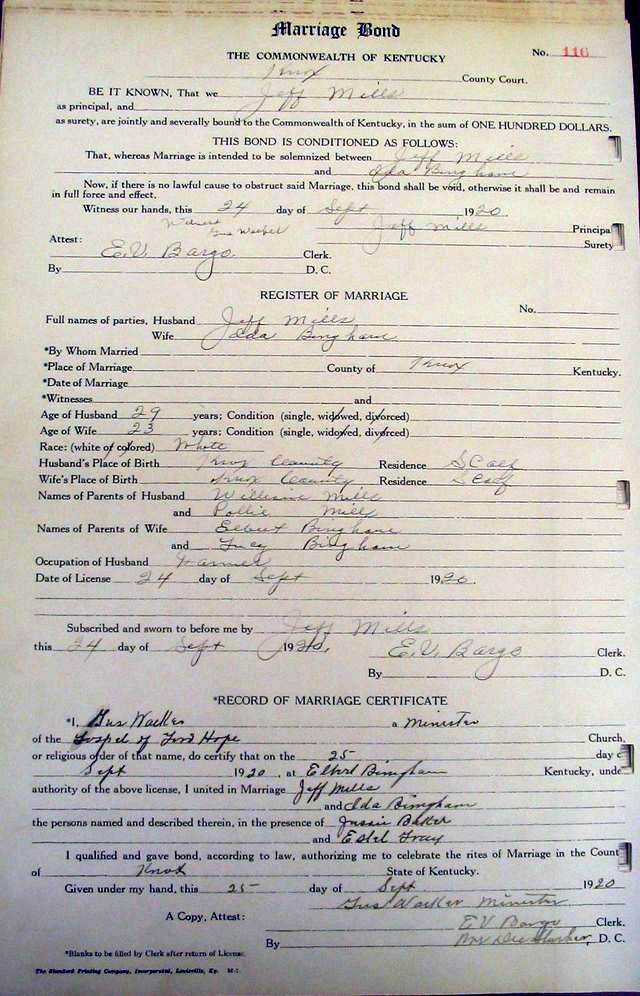 Marriage Bond
THE COMMONWEALTH OF KENTUCKY
No. 116
Knox County Court.
BE IT KNOWN, That we Jeff Mills
as principal, and
as surety, are jointly and severally bound to the Commonwealth of Kentucky, in the sum of ONE HUNDRED DOLLARS.
THIS BOND IS CONDITIONED AS FOLLOWS:
That, whereas Marriage is intended to be solemnized between Jeff Mills
and Ida Bingham
Now, if there is no lawful cause to obstruct said Marriage, this bond shall be void, otherwise it shall be and remain
in full force and effect.
Witness our hands, this 24 day of Sept , 1920.
Witness
Gus Jeff Mills Principa
Surety
Attest:
E.V. Bargo Clerk.
By D. C.
REGISTER OF MARRIAGE
No.
Full names of parties, Husband Jeff Mills
Wife Idda Bingham
*By Whom Married
*Place of Marriage County of Knox Kentucky.
*Date of Marriage
*Witnesses and
Age of Husband 29 years; Condition (single, widowed, divorced)
Age of Wife 23 years; Condition (single, widowed, divorced)
Race: (white or colored) White
Husband's Place of Birth Knox County Residence SCalf
Wife's Place of Birth Knox County Residence SCalf
Names of Parents of Husband William Mills
and Pollie Mills
Names of Parents of Wife Elbert Bingham
and Lucy Bingham
Occupation of Husband Farmer
Date of License 24 day of Sept 1920.
Subscribed and sworn to before me by Jeff Mills
this 24 day of Sept 1920. E.V. Bargo Clerk.
By D. C.
*RECORD OF MARRIAGE CERTIFICATE
*I, Gus Walker a Minister
of the Gospel of Hope Church,
or religious order of that name, do certify that on the 25 day o
Sept 1920, at Elbert Bingham Kentucky, unde
authority of the above license, I united in Marriage Jeff Mills
and Ida Bingham
the persons named and described therein, in the presence of Jussie Baker
and Estel Gray
I qualified and gave bond, according to law, authorizing me to celebrate the rites of Marriage in the Count
of Knox State of Kentucky.
Given under my hand, this 25 day of Sept 1920
Gus Walker Minister
A Copy, Attest: E V Bargo Clerk.
By D. C.
*Blanks to be filled by Clerk after return of License.
The Standard Printing Company, Incorporated, Louisville, Ky.